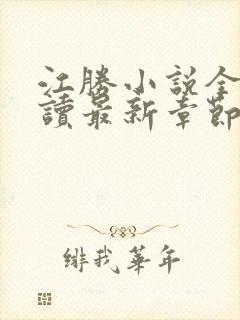 江勝小説全
讀最新章節
緋我華年